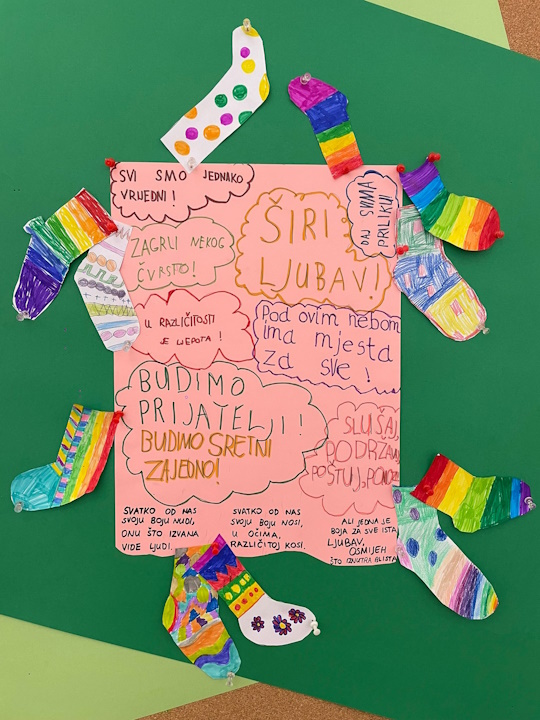 SVI SMO JEDNAKO
VRIJEDNI!
DAJ SVIMA
PRILIKU!
ŠIRI
LJUBAV!
ZAGRLI NEKOG
ČVRSTO!
U RAZLIČITOSTI
JE LJEPOTA!
Pod ovim nebom
ima mjesta
za sve!
BUDIMO
PRIJATELJI!!
BUDIMO SRETNI
ZAJEDNO!
SLUŠAJ,
PODRŽAVAJ
POŠTUJ,
SVATKO OD NAS
SVOJU BOJU NUDI,
ONU ŠTO IZVANA
VIDE LJUDI.
SVATKO OD NAS
SVOJU BOJU NOSI,
U OČIMA,
RAZLIČITOJ KOSI.
ALI JEDNA JE
BOJA ZA SVE ISTA
LJUBAV,
OSMIJEH
ŠTO IZNUTRA BLISTA